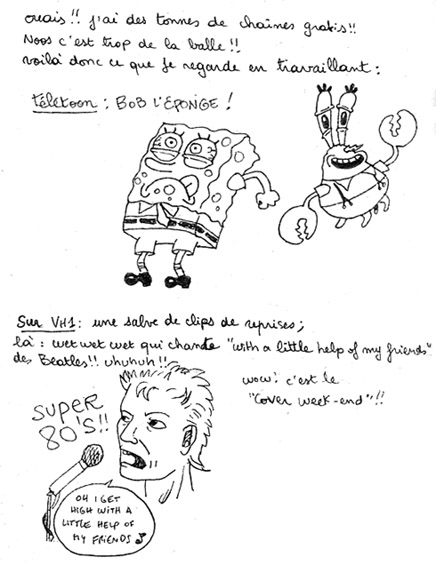 ouais!! j'ai des tonnes de chaînes gratis!!
Noos c'est trop de la balle!!
voilà donc ce que je regarde en travaillant:
télétoon: BOB L'ÉPONGE!
Sur VH1: une salve de clips de reprises;
là: wet wet wet qui chante "with a little help of my friends"
des Beatles!! uhuhuh!!
wow! c'est le
"cover week-end"!!
SUPER
80'S!!
OH I GET
HIGH WITH A
LITTLE HELP OF
MY FRIENDS